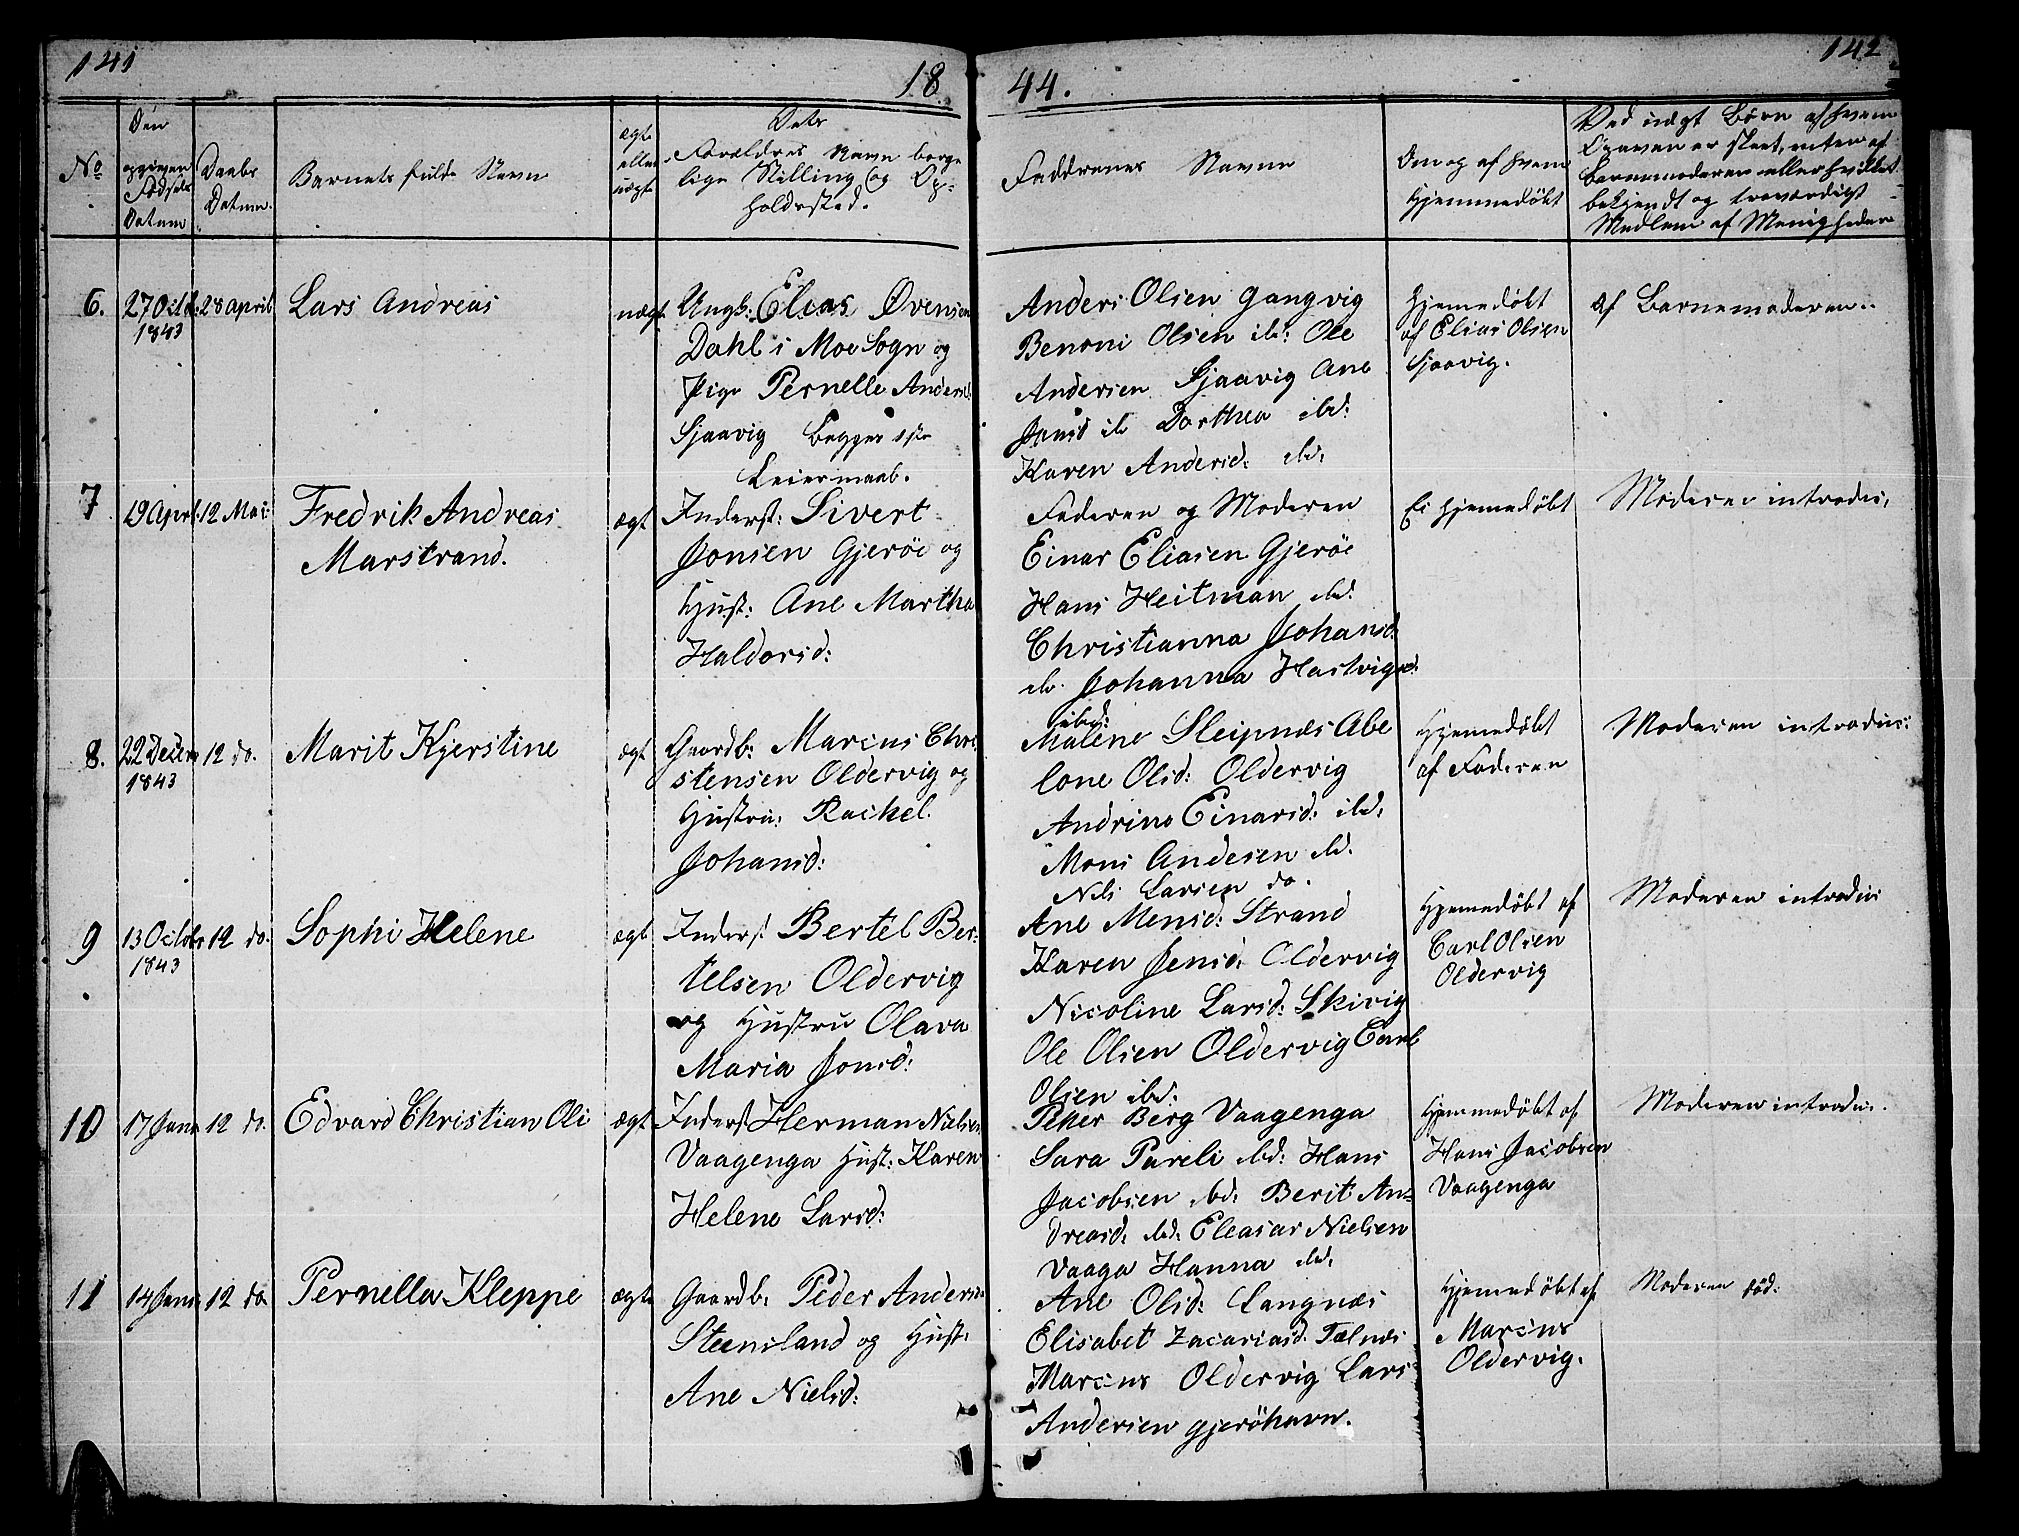 141
18
44.
142
No
Den opgiven Fødsels Datum
Daabs Datum.
Barnets fulde Navn
ægte eller uægte
Dets Forældres Navn borgelige Stilling og Opholdssted.
Faddrenes Navne
Om og af hvem Hjemmedøbt
Ved uægt Børn af hvem
Opgaven er skeet, enten af
Barnemoderen eller hvilket
bekjendt og troværdigt
Medlem af Menigheden
6.
27 Octbr
1843
28 april
Lars Andreas
uægt
Ungk: Elias Øvensen
Dahl i Moe Sogn og
Pige Pernelle Andersd:
Sjaavig Begges 1ste
Leiermaal.
Anders Olsen Gangvig
Benoni Olsen ibd: Ole
Andersen Sjaavig Ane
Jensd ib Dorthea ibd:
Karen Andersd: ibd,
Hjemedøbt
af Elias Olsen
Sjaavig.
af Barnemoderen..
7
19 Apr:
12 Mai:
Fredrik Andreas
Marstrand.
ægt
Inderst: Sivert
Jonsen Gjerøe og
Hust: Ane Martha
Haldorsd:
Faderen og Moderen
Einar Eliasen Gjerøe
Hans Heitman ibd:
Christianna Johansd:
ib. Johanna Hartvigsd:
ibd:
Ei Hjemedøbt
Moderen introdu:
8.
22 Decem
1843
12 do.
Marit Kjerstine
ægt
Gaardb: Marcus Chri
stensen Oldervig og
Hustru: Rachel
Johansd:
Malene Sleipnæs Abe
lone Olsd: Oldervig
Andrine Einarsd: ibd,
Mons Andesen ibd.
Nels Larsen do.
Hjemedøbt
af Faderen
Moderen introdus:
9
13 Octobr
1843
12 do.
Sophi Helene
ægt
Inderst Bertel Ber-
telsen Oldervig
og Hustru Olava
Maria Jonsd:
Ane Mensd: Strand
Karen Jensd: Oldervig
Nicoline Larsd: Skivig
Ole Olsen Oldervig Carl
Olsen ibd:
Hjemedøbt af
Carl Olsen
Oldervig
Moderen introdu:
10
17 Janu
12 do.
Edvard Christian Oli
ægt
Inderst Herman Nielsen
Vaagenga Hust: Karen
Helene Larsd:
Peter Berg Vaagenga
Sara Pareli ibd: Hans
Jacobsen ibd: Berit An-
dreasd: ibd: Eleasar Nielsen
Vaaga Hanna ibd,
Hjemmedøbt af
Hans Jacobsen
Vaagenga
Moderen introdu:
11
14 Janu:
12 do.
Pernella Kleppe
ægte
Gaardb: Peder Anders:
Steensland og Hust:
Ane Nielsd:
Ane Olsd: Langnæs
Elisabet Zacariasd: Tælnæs
Marcus Oldervig Lars
Andersen gjerøhavn.
Hjemedøbt af
Marcus
Oldervig.
Moderen død: